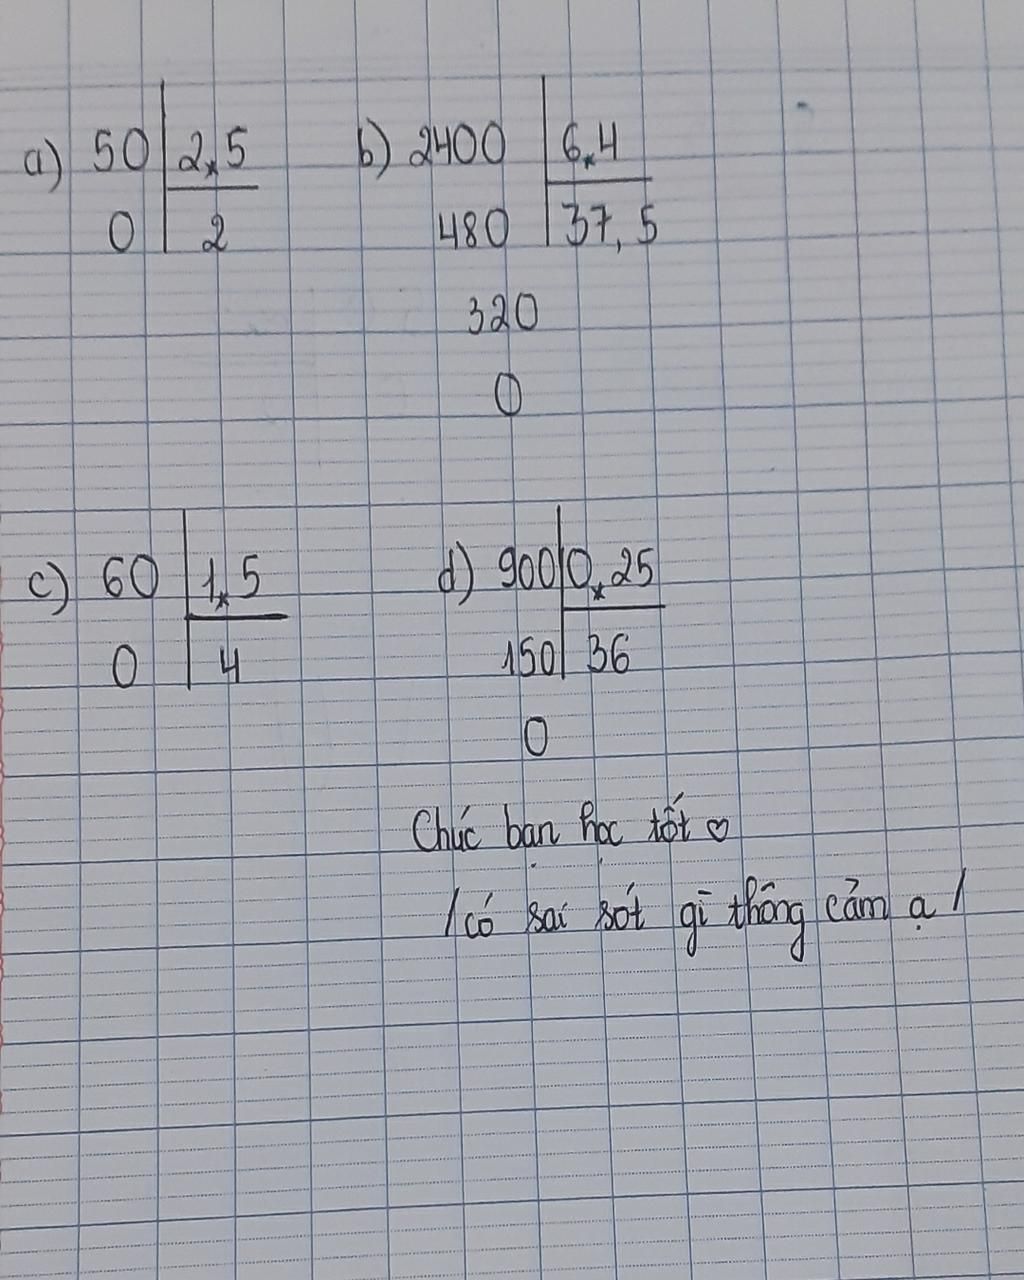 a) 50 2,5 b) 2400 6,4
0 2 480 37,5
320
0
c) 60 1,5 d) 900 0,25
0 4 150 36
0
Chúc bạn học tốt ♡
/có sai sót gì thông cảm ạ/